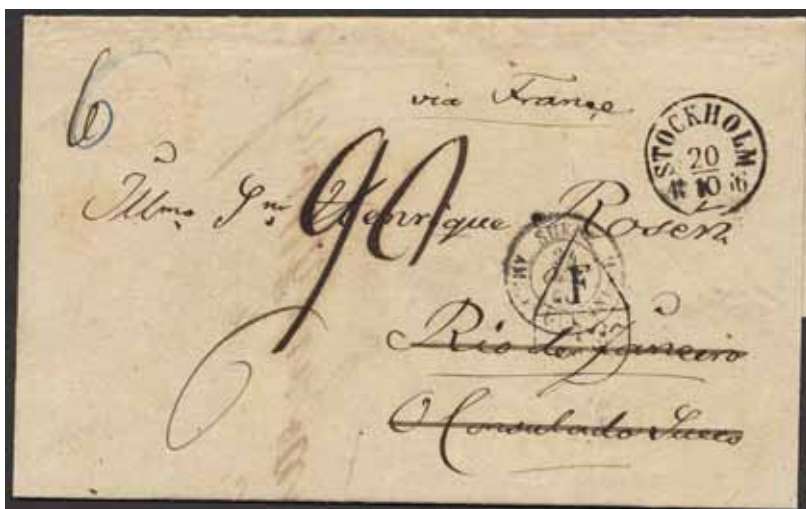 6
via France
STOCKHOLM
20
10
Illmo Snr Henrique Rosen
90
SUEDE
F
Rio de Janeiro
O Consulado Sueco